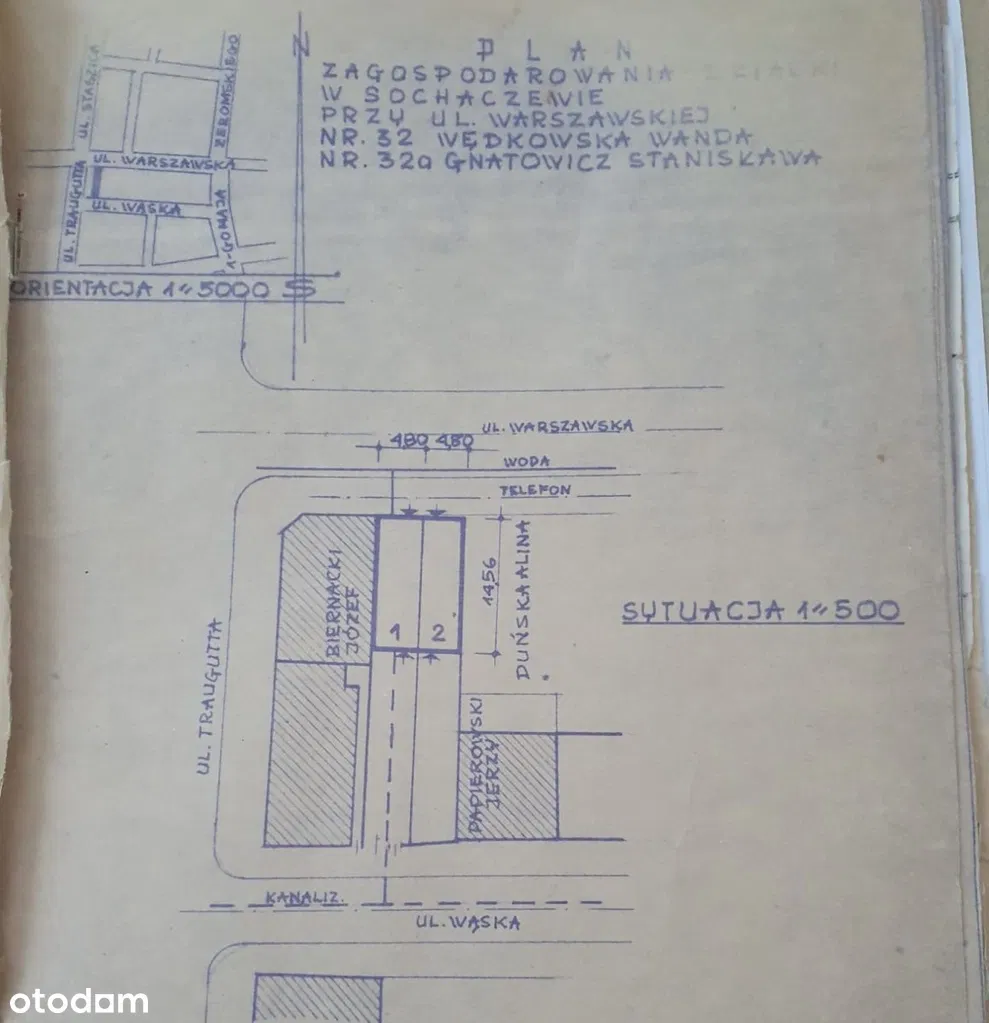 PLAN
ZAGOSPODAROWANIA DZIAŁKI
W SOCHACZEWIE
PRZY UL. WARSZAWSKIEJ
NR. 32 WĘDKOWSKA WANDA
NR. 32a GNATOWICZ STANISŁAWA
N
UL. STASZICA
ŻEROMSKIEGO
UL. WARSZAWSKA
UL. TRAUGUTTA
UL. WĄSKA
1-GO MAJA
ORIENTACJA 1:5000
S
UL. WARSZAWSKA
4,80 4,80
WODA
TELEFON
BIERNACKI
JÓZEF
1 2
14,56
DUŃSKA ALINA
SYTUACJA 1:500
UL. TRAUGUTTA
PAPIEROWSKI
JERZY
KANALIZ.
UL. WĄSKA
otodom